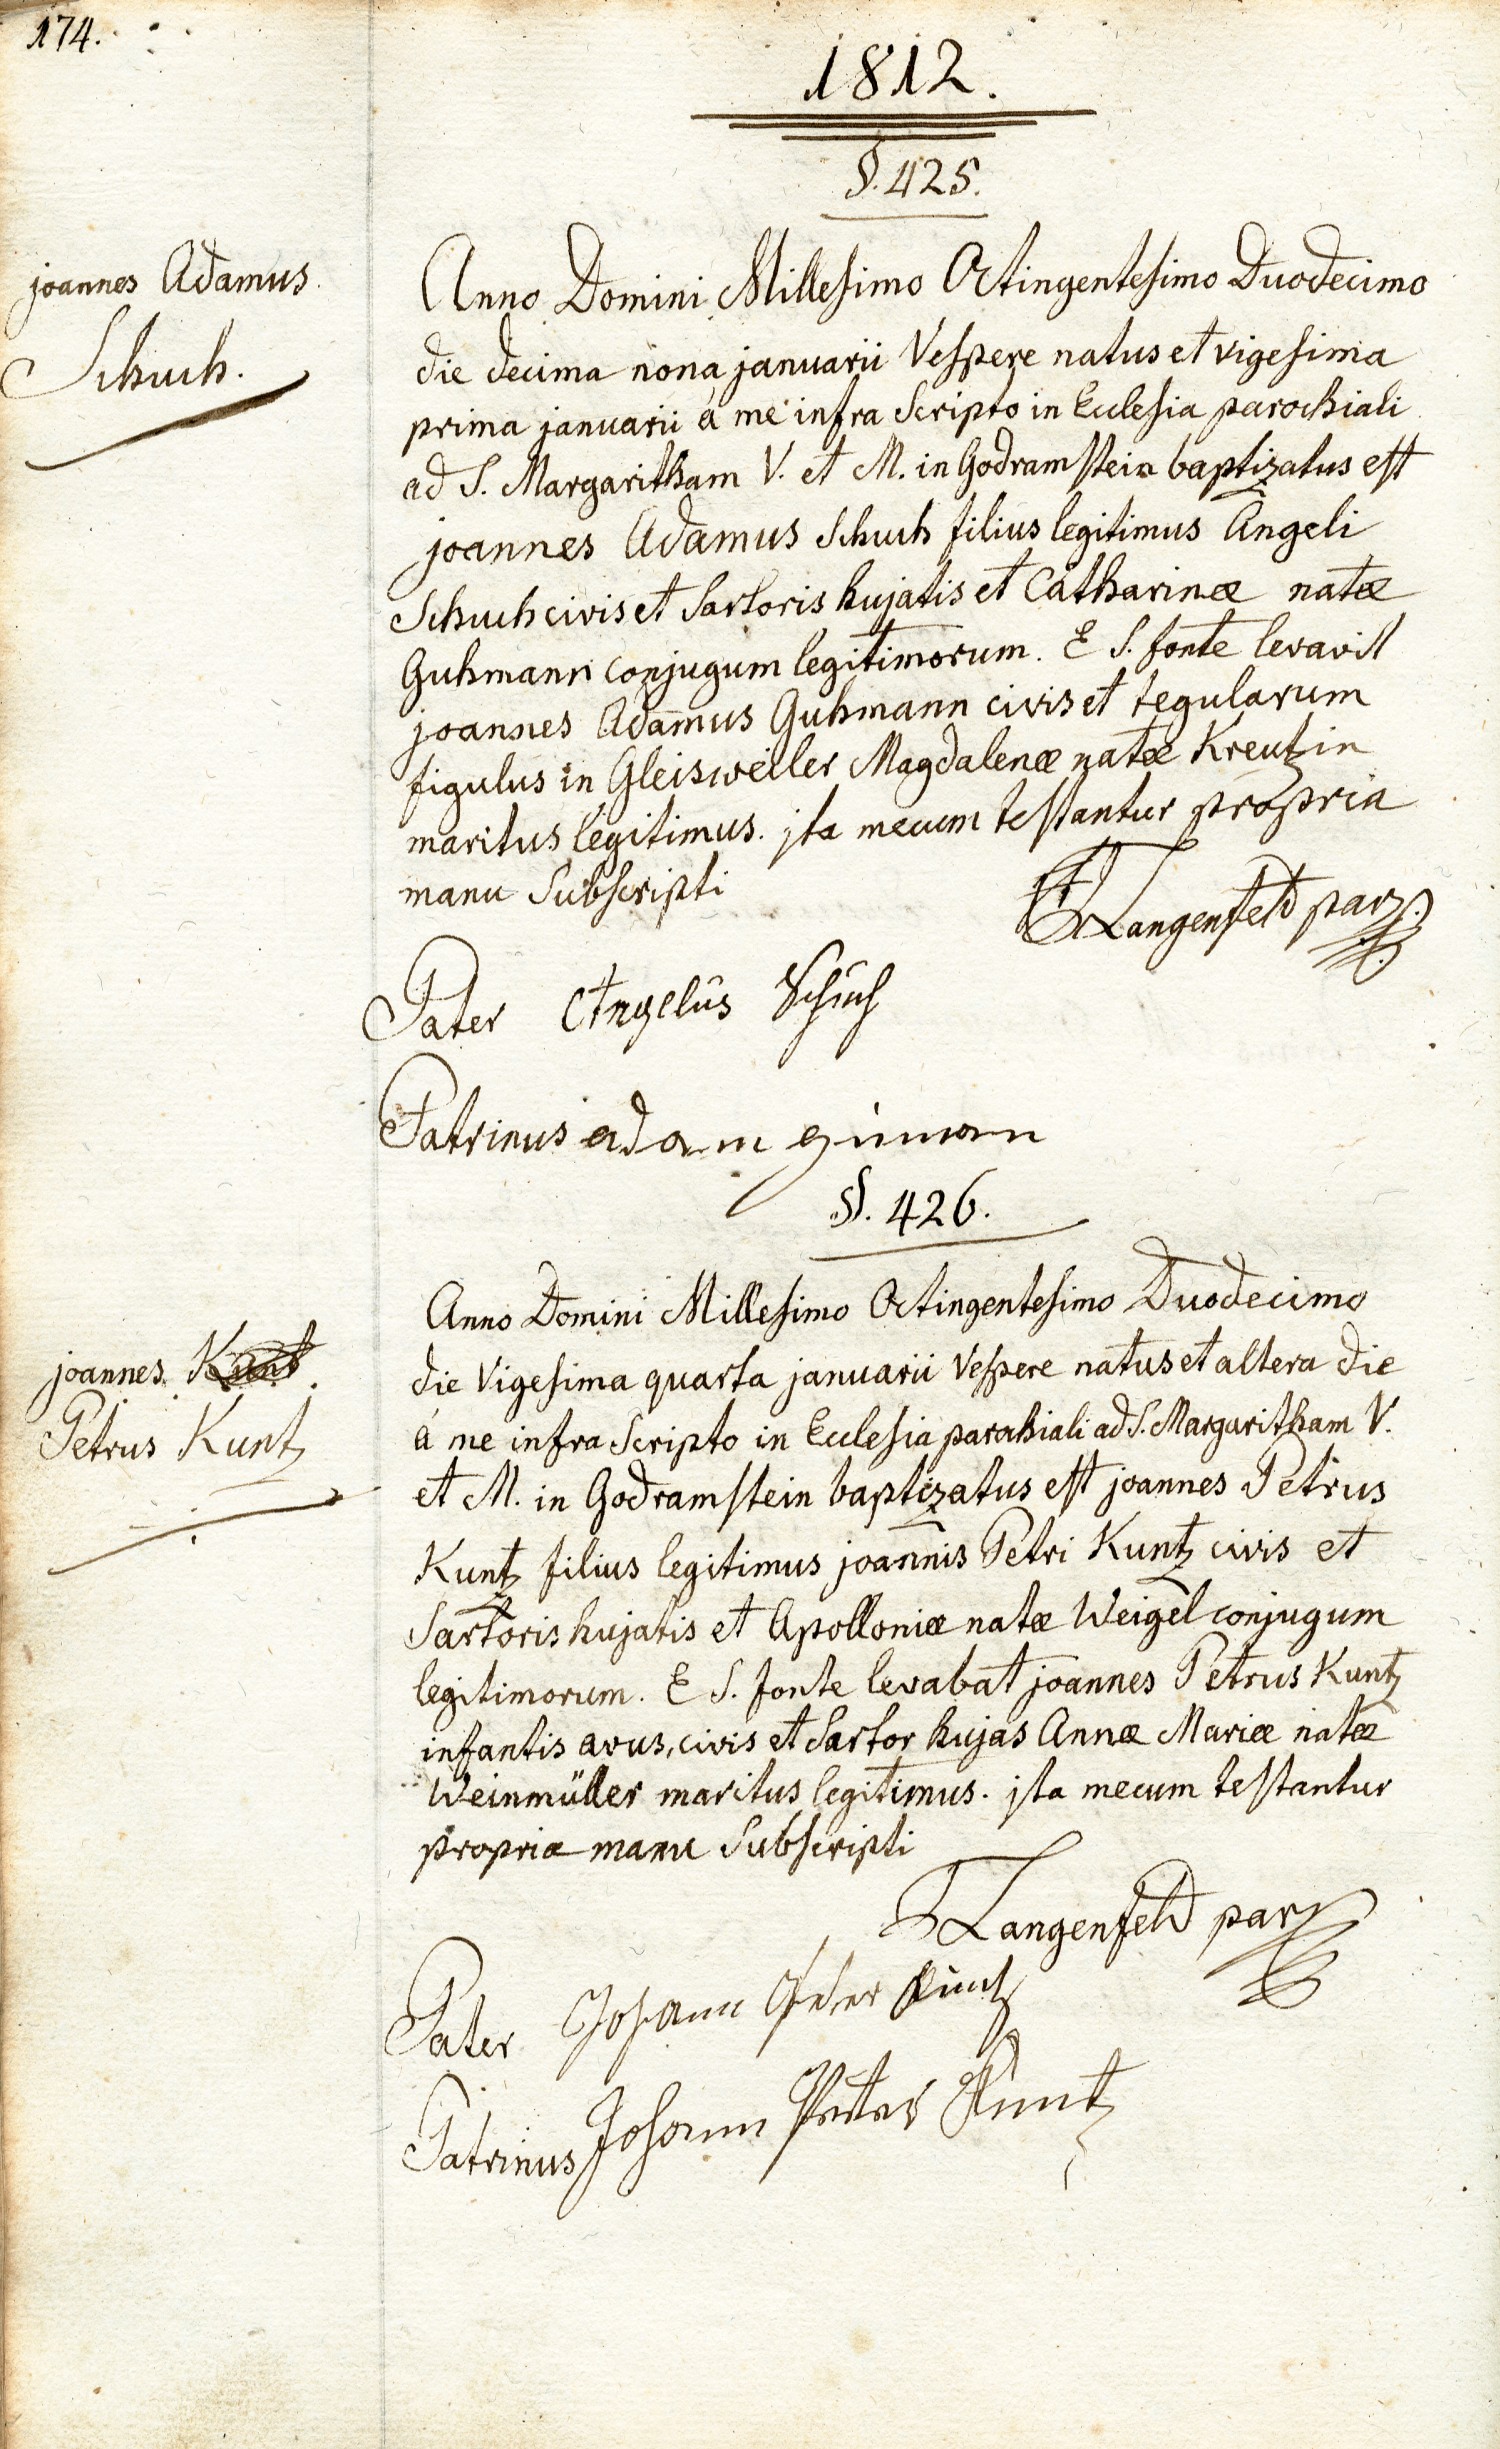 174.
1812.
§. 425.
joannes Adamus
Schuch.
Anno Domini Millesimo Octingentesimo Duodecimo
die decima nona januarii Vespere natus et vigesima
prima januarii á me infra Scripto in Ecclesia parochiali
ad S. Margaritham V. et M. in Godramstein baptizatus est
joannes Adamus Schuch filius legitimus Angeli
Schuch civis et Sartoris hujatis et Catharinæ natæ
Guhmann conjugum legitimorum. E S. fonte levavit
joannes Adamus Guhmann civis et tegularum
figulus in Gleisweiller Magdalenæ natæ Kreutzin
maritus legitimus. jta mecum testantur propria
manu Subscripti
Langenfeld par.
Pater Angelus Schuch
Patrinus adam guman
§. 426.
joannes Kunt
Petrus Kuntz
Anno Domini Millesimo Octingentesimo Duodecimo
die Vigesima quarta januarii Vespere natus et altera die
á me infra Scripto in Ecclesia parochiali ad S. Margaritham V.
et M. in Godramstein baptizatus est joannes Petrus
Kuntz filius legitimus joannis Petri Kuntz civis et
Sartoris hujatis et Apolloniæ natæ Weigel conjugum
legitimorum. E S. fonte levabat joannes Petrus Kuntz
infantis avus, civis et Sartor hujas Annæ Mariæ natæ
Weinmüller maritus legitimus. jta mecum testantur
propria manu Subscripti
Langenfeld par
Pater Johann Peter Kuntz
Patrinus Johann Peter Kuntz